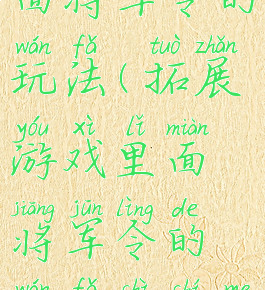 面将军令的
wán fǎ tuò zhǎn
玩法(拓展
yóu xì lǐ miàn
游戏里面
jiāng jūn lìng de
将军令的
wán fǎ shì shí me